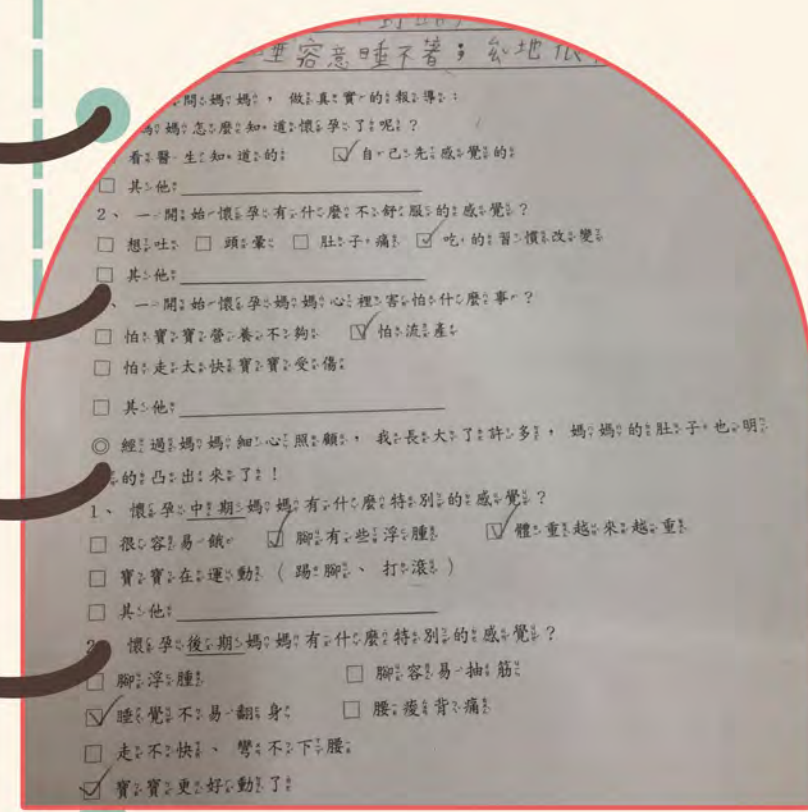 容意睡不著；幺地
開媽媽，做真實的報導：
媽媽怎麼知道懷孕了呢？
看醫生知道的 ☑ 自己先感覺的
□ 其他
2、一開始懷孕有什麼不舒服的感覺？
□ 想吐 □ 頭暈 □ 肚子痛 ☑ 吃的習慣改變
□ 其他
、一開始懷孕媽媽心裡害怕什麼事？
□ 怕寶寶營養不夠 ☑ 怕流產
□ 怕走太快寶寶受傷
□ 其他
◎ 經過媽媽細心照顧，我長大了許多，媽媽的肚子也明
的凸出來了！
1、懷孕中期媽媽有什麼特別的感覺？
□ 很容易餓 ☑ 腳有一些浮腫 ☑ 體重越來越重
□ 寶寶在運動（踢腳、打滾）
□ 其他
2 懷孕後期媽媽有什麼特別的感覺？
□ 腳浮腫 □ 腳容易抽筋
☑ 睡覺不易翻身 □ 腰痠背痛
□ 走不快、彎不下腰
☑ 寶寶更好動了